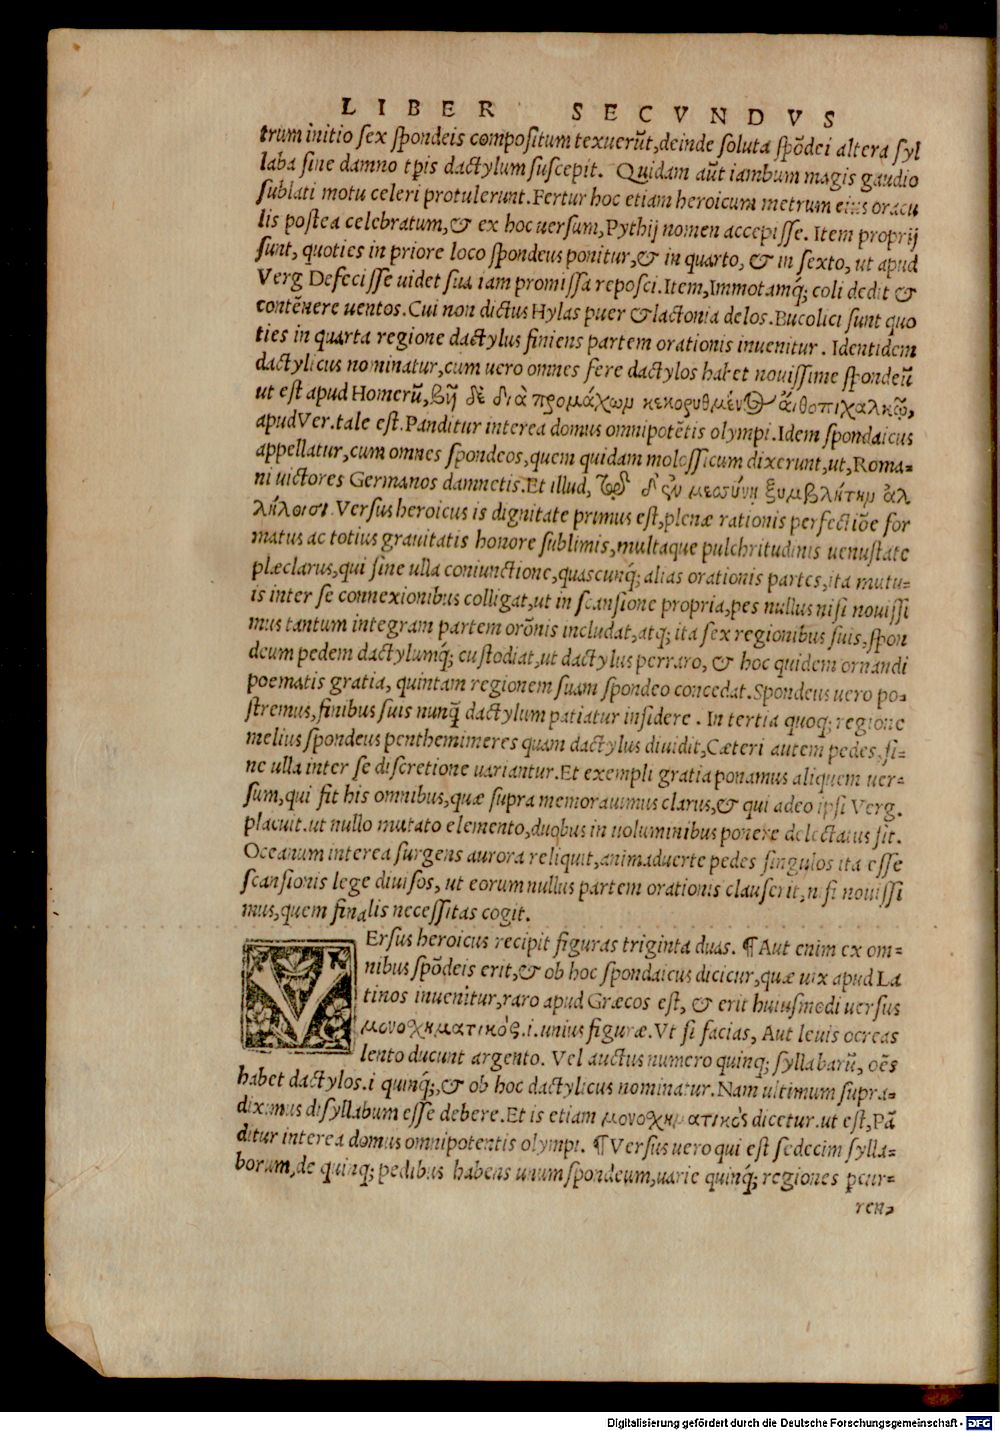 LIBER SECVNDVS
trum initio sex spondeis compositum texuerũt, deinde soluta spõdei altera syl
laba sine damno tp̃is dactylum suscepit. Quidam aũt iambum magis gaudio
sublati motu celeri protulerunt. Fertur hoc etiam heroicum metrum eius oracu
lis postea celebratum, & ex hoc uersum, Pythij nomen accepisse. Item proprij
sunt, quoties in priore loco spondeus ponitur, & in quarto, & in sexto, ut apud
Verg Defecisse uidet sua iam promissa reposci. Item, Immotamq́; coli dedit &
contẽnere uentos. Cui non dictus Hylas puer & lactonia delos. Bucolici sunt quo
ties in quarta regione dactylus finiens partem orationis inuenitur. Identidem
dactylicus nominatur, cum uero omnes fere dactylos habet nouissime spondeũ
ut est apud Homerũ, βῆ δὲ διὰ προμάχων κεκορυθμένος ἄιθοπι χαλκῷ,
apud Ver. tale est. Panditur interea domus omnipotẽtis olympi. Idem spondaicus
appellatur, cum omnes spondeos, quem quidam molossicum dixerunt, ut, Roma-
ni uictores Germanos damnetis. Et illud, τὼ δ' ἐν μεσσήνῃ ξυμβλήτην ἀλ
λήλοισι. Versus heroicus is dignitate primus est, plenæ rationis perfectiõe for
matus ac totius grauitatis honore sublimis, multaque pulchritudinis uenustate
plæclarus, qui sine ulla coniunctione, quascunq́; alias orationis partes, ita mutu-
is inter se connexionibus colligat, ut in scansione propria, pes nullus nisi nouissi
mus tantum integram partem orõnis includat, atq; ita sex regionibus suis, spon
deum pedem dactylumq́; custodiat, ut dactylus perraro, & hoc quidem ornandi
poematis gratia, quintam regionem suam spondeo concedat. Spondeus uero po-
stremus, finibus suis nunq̃ dactylum patiatur insidere. In tertia quoq; regione
melius spondeus penthemimeres quam dactylus diuidit, Cæteri autem pedes, si-
ne ulla inter se discretione uariantur. Et exempli gratia ponamus aliquem uer-
sum, qui fit his omnibus, quæ supra memorauimus clarus, & qui adeo ipsi Verg.
placuit. ut nullo mutato elemento, duobus in uoluminibus ponere delectatus sit.
Oceanum interea surgens aurora reliquit, animaduerte pedes singulos ita esse
scansionis lege diuisos, ut eorum nullus partem orationis clauserit, nisi nouissi
mus, quem finalis necessitas cogit.
VErsus heroicus recipit figuras triginta duas. ¶ Aut enim ex om-
nibus spõdeis erit, & ob hoc spondaicus dicicur, quæ uix apud La
tinos inuenitur, raro apud Græcos est, & erit huiusmodi uersus
μονοχηματικός .i. unius figuræ. Vt si facias, Aut leuis ocreas
lento ducunt argento. Vel auctus numero quinq; syllabarũ, oẽs
habet dactylos .i quinq́;, & ob hoc dactylicus nominatur. Nam ultimum supra-
diximus disyllabum esse debere. Et is etiam μονοχηματικὸς dicetur. ut est, Pã
ditur interea domus omnipotentis olympi. ¶ Versus uero qui est sedecim sylla-
borum, de quinq; pedibus habens unum spondeum, uarie quinq́; regiones pcur-
ren,
Digitalisierung gefördert durch die Deutsche Forschungsgemeinschaft - DFG